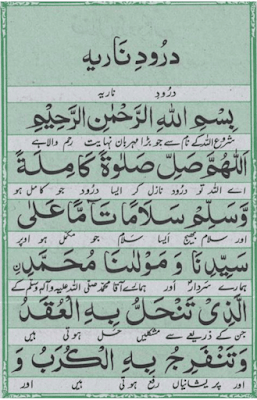 درُودِ نَاریه
درُودِ ناریه
بِسْمِ اللهِ الرَّحْمٰنِ الرَّحِيْمِ
شروع اللہ کے نام سے جو بڑا مہربان نہایت رحم والا ہے
اَللّٰهُمَّ صَلِّ صَلٰوةً كَامِلَةً
اے اللہ تو درُود نازل کر ایسا درُود جو کامل ہو
وَّسَلِّمْ سَلَامًا تَآمًّا عَلٰى
اور سلام بھیج ایسا سلام جو مکمل ہو اوپر
سَيِّدِنَا وَ مَوْلٰنَا مُحَمَّدِنِ
ہمارے سردار اور ہمارے آقا محمد صلی اللہ علیہ وآلہ وسلم کے
الَّذِیْ تَنْحَلُّ بِهِ الْعُقَدُ
جن کے ذریعے سے مشکلیں حل ہوتی ہیں
وَتَنْفَرِجُ بِهِ الْكُرَبُ وَ
اور پریشانیاں رفع ہوتی ہیں اور